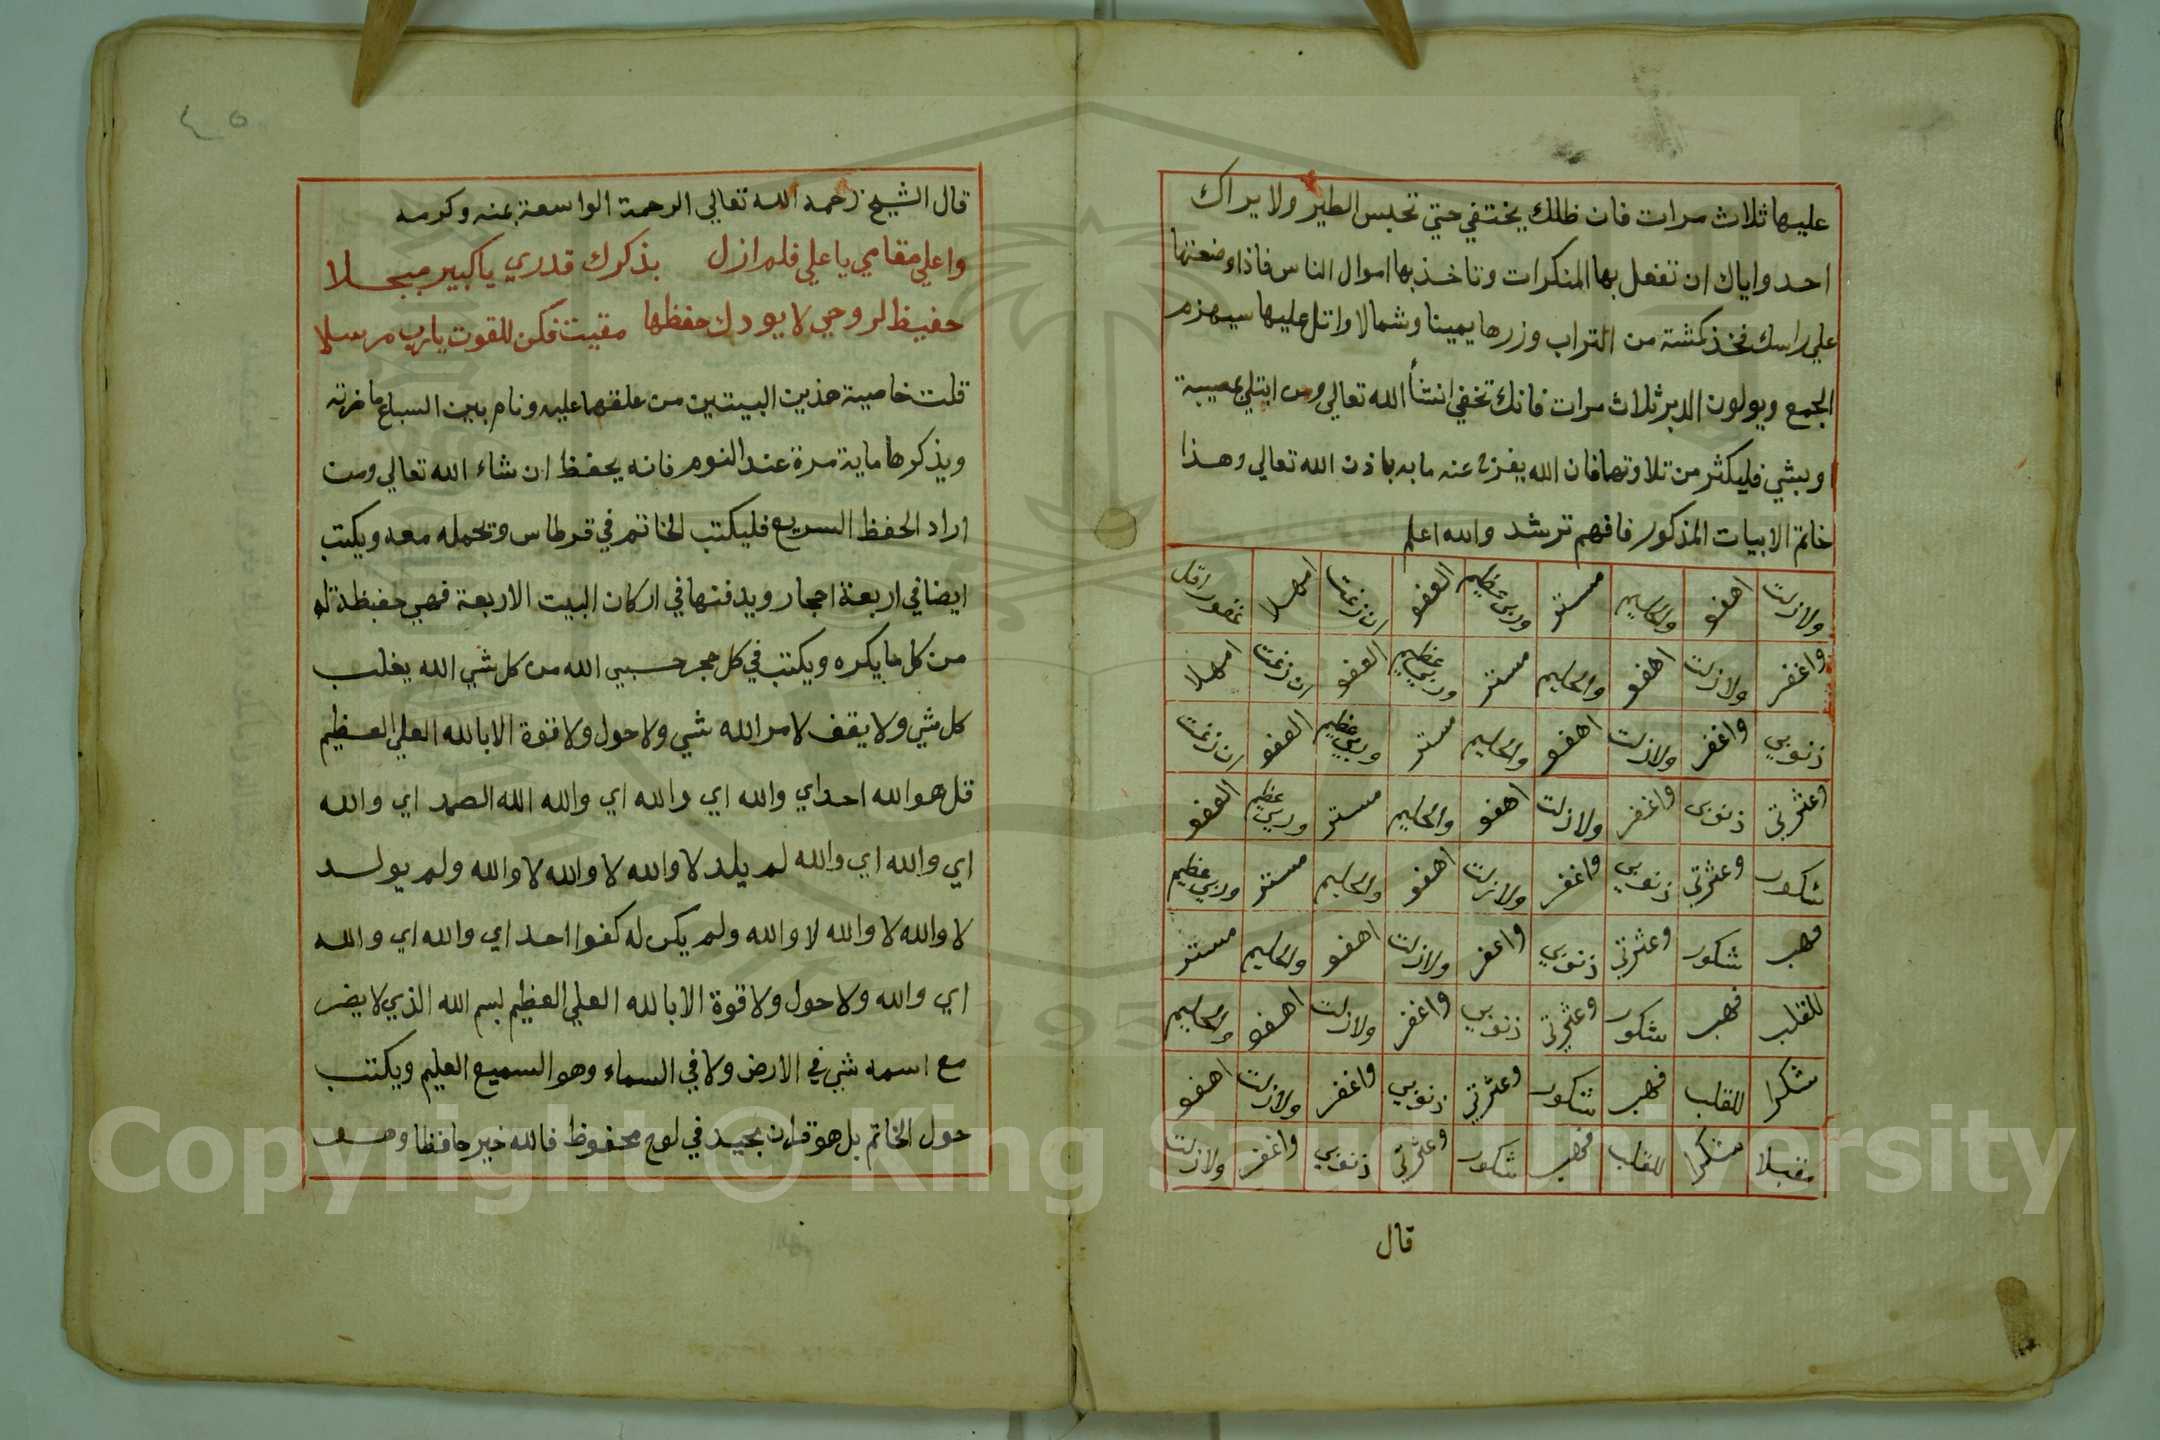 عليها ثلاث مرات فان ظلك يختفي حتي تحبس الطير ولا يراك
احد واياك ان تفعل بها المنكرات وتاخذ بها اموال الناس فاذا وضعتها
علي راسك فخذ كمشة من التراب وزرها يمينا وشمالا واتل عليها سيهزم
الجمع ويولون الدبر ثلاث مرات فانك تخفي انشأ الله تعالي ومن ابتلي بمصيبة
او بشي فليكثر من تلاوتها فان الله يفرج عنه ما به باذن الله تعالي وهذا
خاتم الابيات المذكور فافهم ترشد والله اعلم
ولازلت اهفو والحليم مستر وربي عظيم العفو ان زغت امهلا غفور اقل
واغفر ولازلت اهفو والحليم مستر وربي عظيم العفو ان زغت امهلا
ذنوبي واغفر ولازلت اهفو والحليم مستر وربي عظيم العفو ان زغت
وعثرتي ذنوبي واغفر ولازلت اهفو والحليم مستر وربي عظيم العفو
شكور وعثرتي ذنوبي واغفر ولازلت اهفو والحليم مستر وربي عظيم
فهب شكور وعثرتي ذنوبي واغفر ولازلت اهفو والحليم مستر
للقلب فهب شكور وعثرتي ذنوبي واغفر ولازلت اهفو والحليم
شكرا للقلب فهب شكور وعثرتي ذنوبي واغفر ولازلت اهفو
مقبلا شكرا للقلب فهب شكور وعثرتي ذنوبي واغفر ولازلت
قال
٤٥
قال الشيخ رحمه الله تعالي الرحمة الواسعة بمنه وكرمه
واعلي مقامي يا علي فلم ازل بذكرك قدري يا كبير مبجلا
حفيظ لروحي لا يودك حفظها مقيت فكن للقوت يارب مرسلا
قلت خاصية هذين البيتين من علقها عليه ونام بين السباع ما ضرته
ويذكرها ماية مرة عند النوم فانه يحفظ ان شاء الله تعالي ومن
اراد الحفظ السريع فليكتب الخاتم في قرطاس وتحمله معه ويكتب
ايضا في اربعة احجار ويدفنها في اركان البيت الاربعة فهي حفيظة له
من كل ما يكره ويكتب في كل حجر حسبي الله من كل شي الله يغلب
كل شي ولا يقف لامر الله شي ولا حول ولا قوة الا بالله العلي العظيم
قل هو الله احد اي والله اي والله اي والله الله الصمد اي والله
اي والله اي والله لم يلد لا والله لا والله لا والله ولم يولد
لا والله لا والله لا والله ولم يكن له كفوا احد اي والله اي والله
اي والله ولا حول ولا قوة الا بالله العلي العظيم بسم الله الذي لا يضر
مع اسمه شي في الارض ولا في السماء وهو السميع العليم ويكتب
حول الخاتم بل هو قران مجيد في لوح محفوظ فالله خير حافظا وهو
Copyright © King Saud University